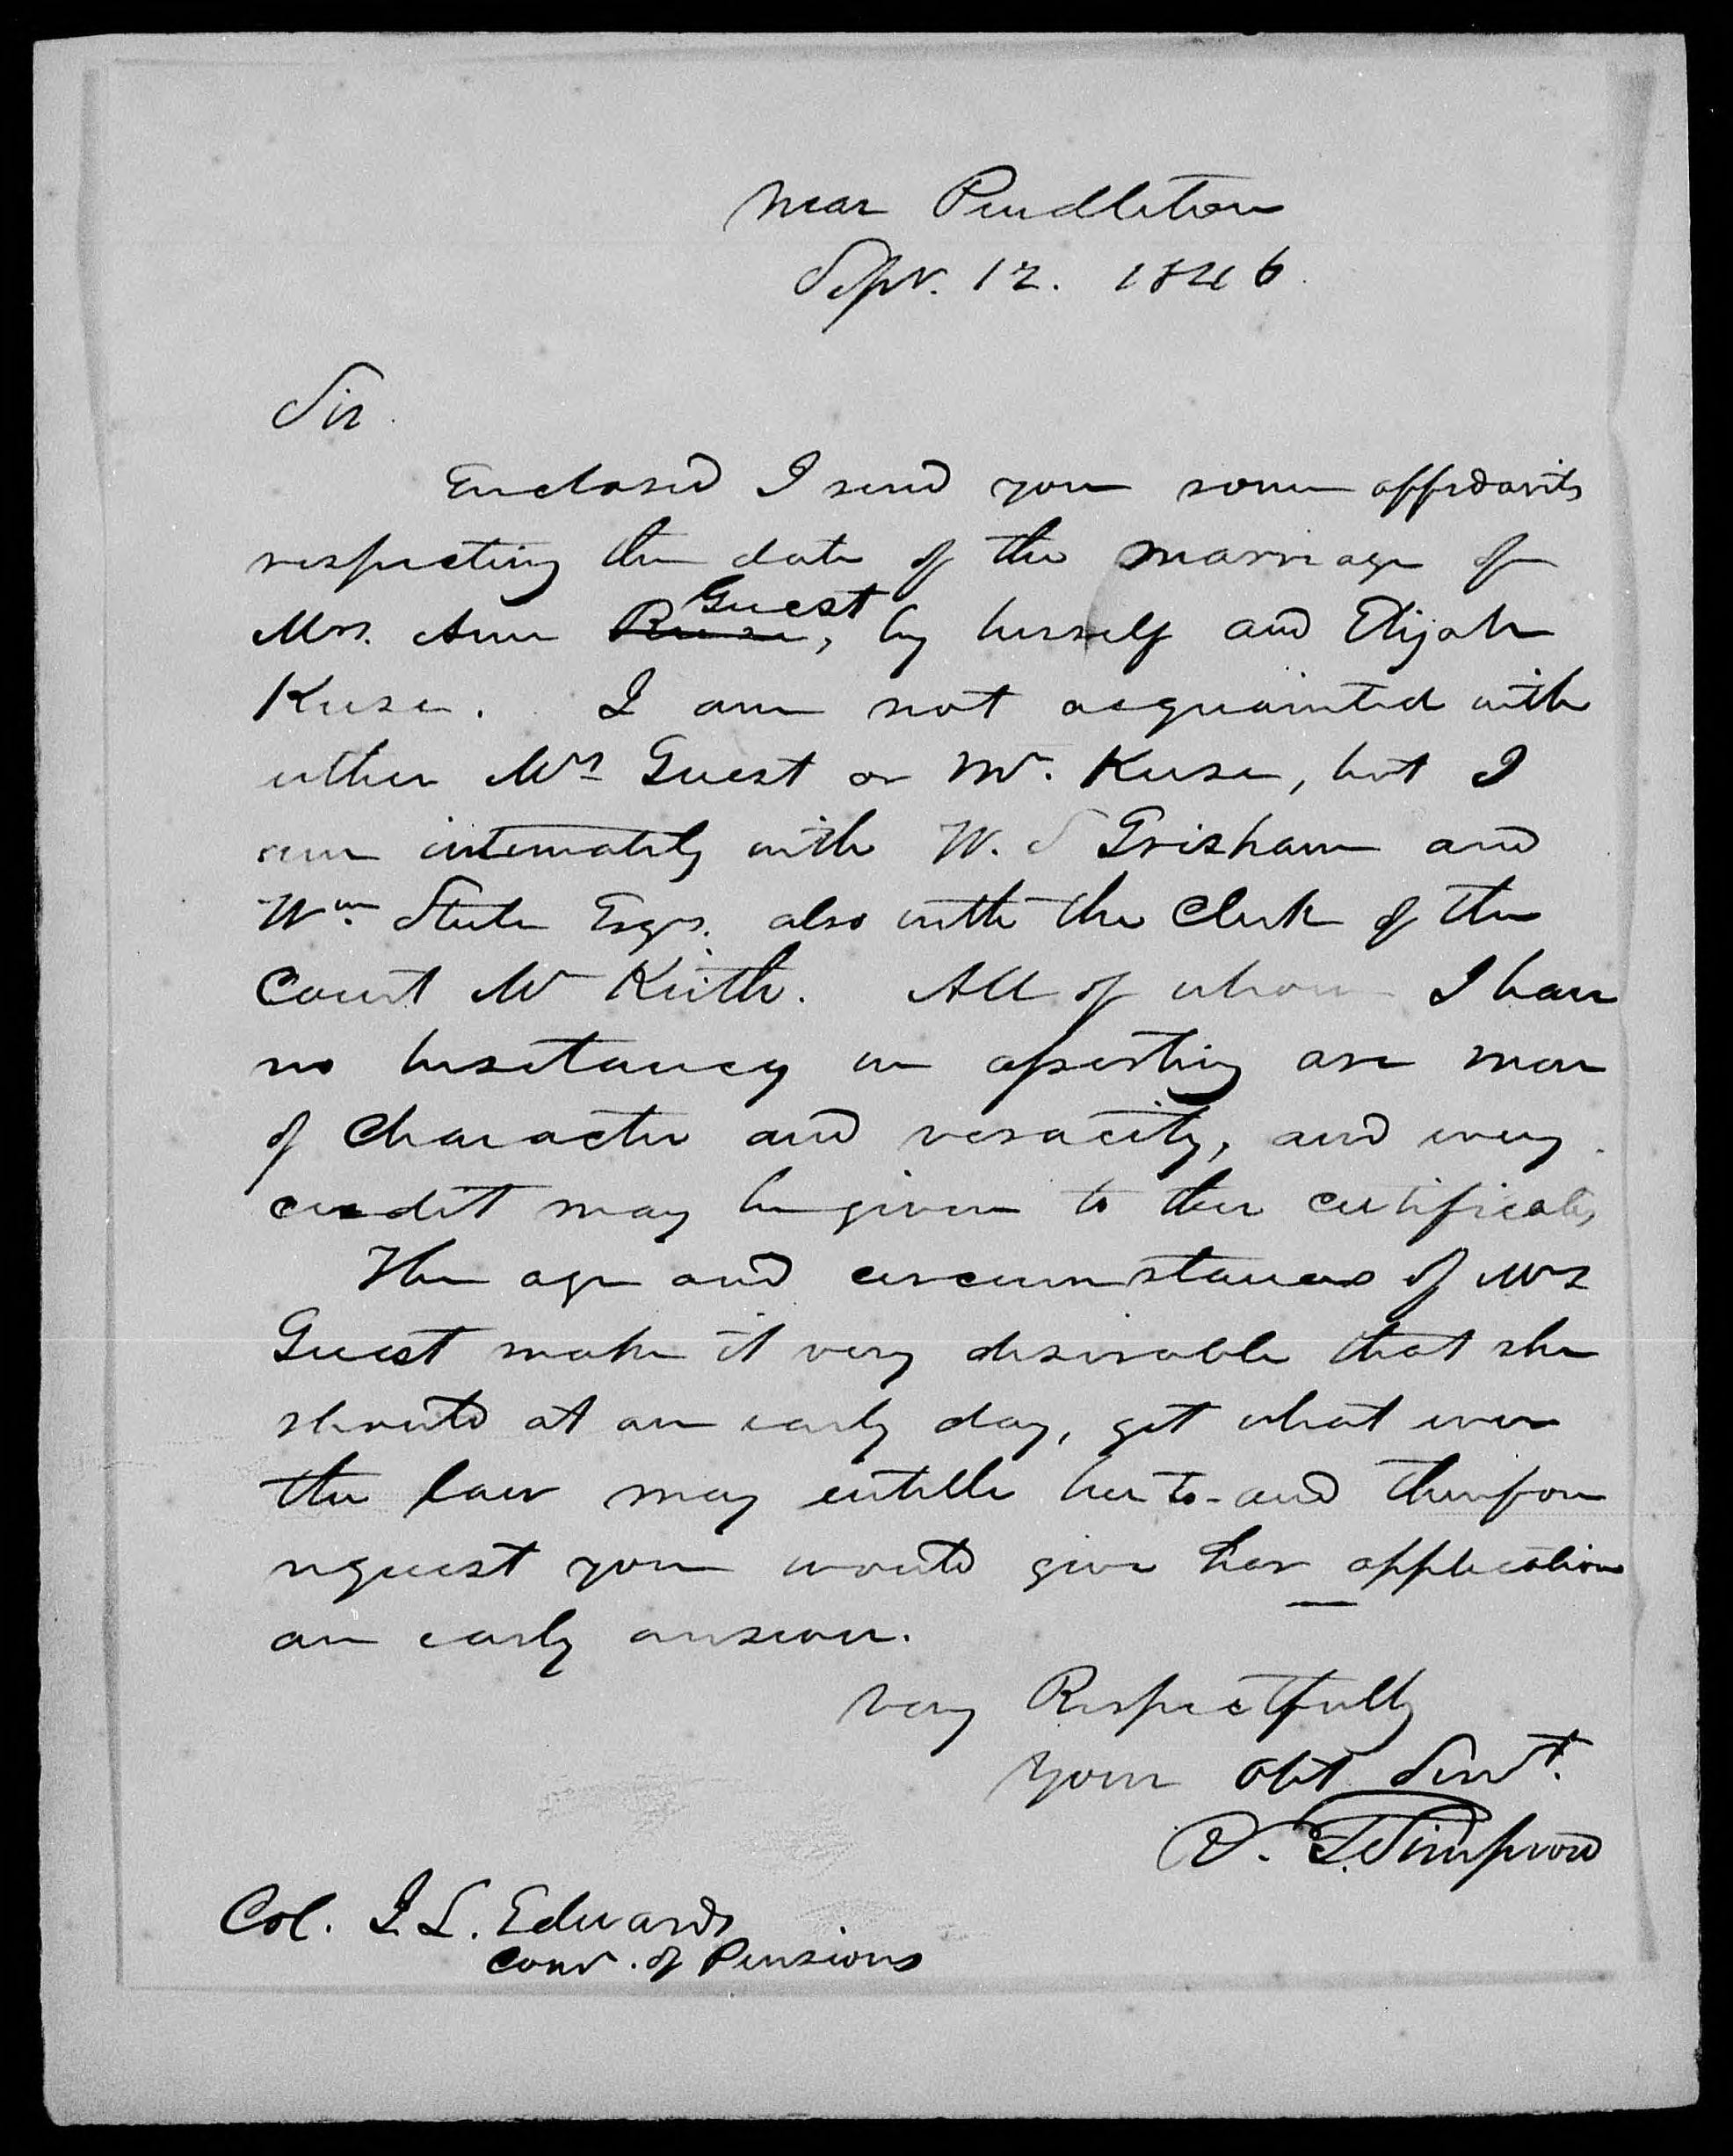 near Pendleton
Sept. 12. 1846
Sir
Enclosed I send you some affidavits
respecting the date of the marriage of
Mrs. Ann Guest, by herself and Elijah
Keese. I am not acquainted with
either Mrs Guest or Mr. Keese, but I
am intimately with W. S Grisham and
Wm. Steele Esqrs. also with the Clerk of the
Court Mr Keith. All of whom I have
no hesitancy in asserting are men
of Character and veracity, and every
credit may be given to their certificates
The age and circumstances of Mrs
Guest make it very desirable that she
should at an early day, get what ever
the law may entitle her to - and therefore
request you would give her application
an early answer.
very Respectfully
your obt Servt.
R. F. Simpson
Col. J. L. Edwards
Comr. of Pensions